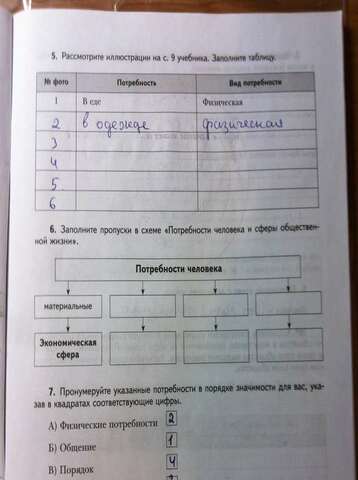 5. Рассмотрите иллюстрации на с. 9 учебника. Заполните таблицу.
№ фото Потребность Вид потребности
1 В еде Физическая
2 в одежде физическая
3
4
5
6
6. Заполните пропуски в схеме «Потребности человека и сферы обществен-
ной жизни».
Потребности человека
материальные
Экономическая
сфера
7. Пронумеруйте указанные потребности в порядке значимости для вас, ука-
зав в квадратах соответствующие цифры.
А) Физические потребности 2
Б) Общение 1
В) Порядок 4